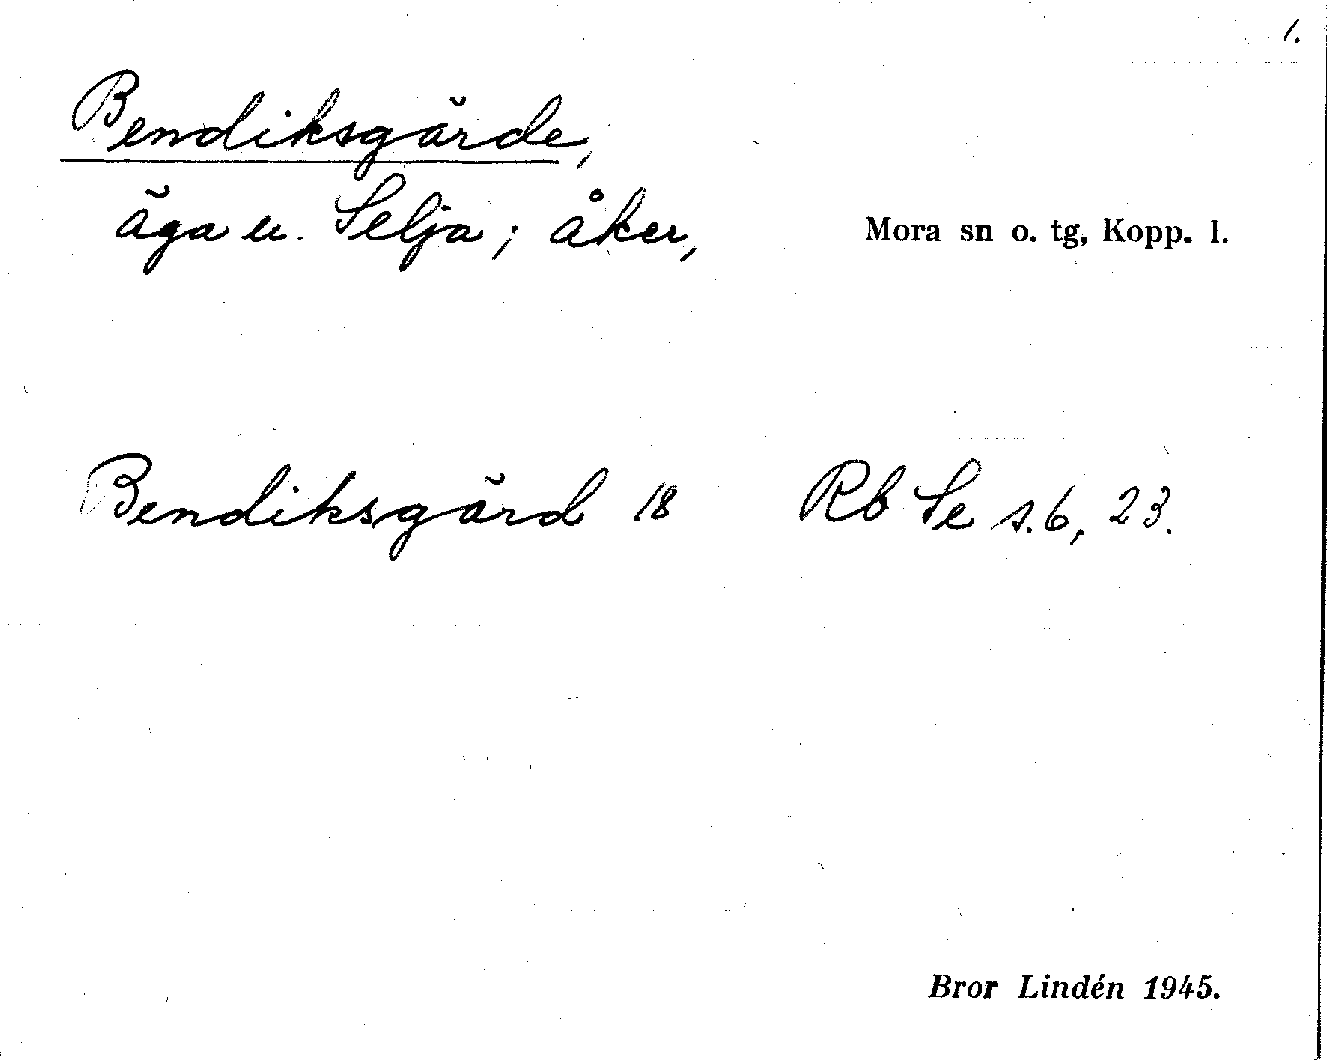 1.
Bendiksgärde,
äga u. Selja; åker,
Mora sn o. tg, Kopp. l.
Bendiksgärd 18 Rb Se s. 6, 23.
Bror Lindén 1945.